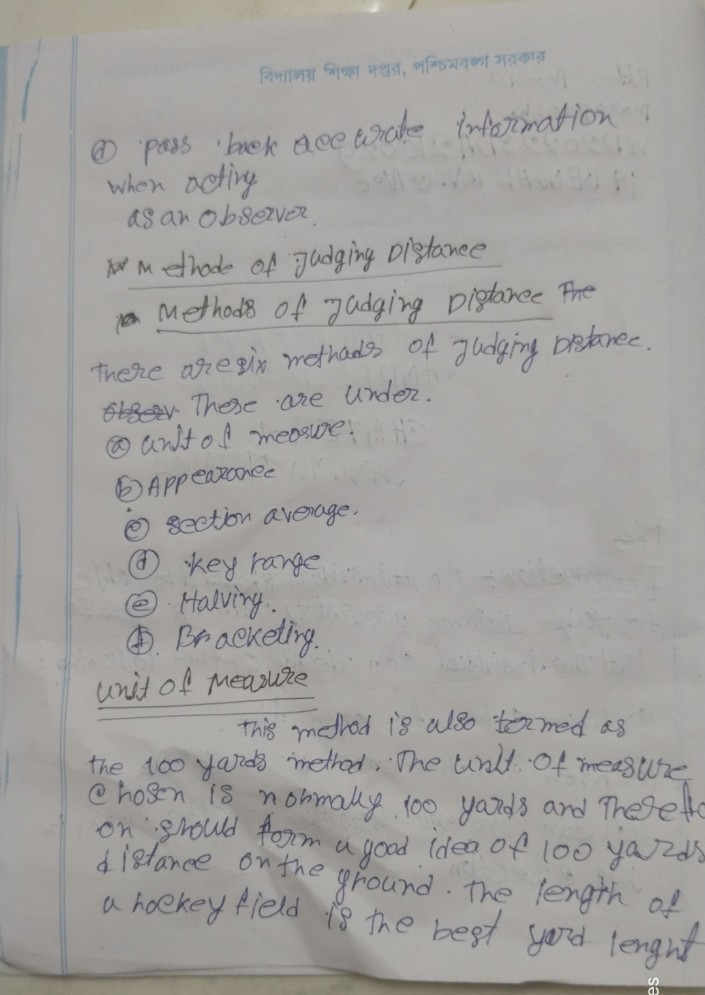 বিদ্যালয় শিক্ষা দপ্তর, পশ্চিমবঙ্গ সরকার
ⓓ pass back accurate information
when acting
as an observer.
Methode of Judging Distance
Methods of Judging Distance The
There are six methods of Judging Distance.
These are under.
ⓐ unit of measure.
ⓑ Appearance
ⓒ section average.
ⓓ key range
ⓔ Halving.
ⓕ. Bracketing.
unit of Measure
This method is also termed as
the 100 yards method. The unit of measure
chosen is normally 100 yards and There
on should form a good idea of 100 yards
distance on the ground. The length of
a hockey field is the best yard lenght
es